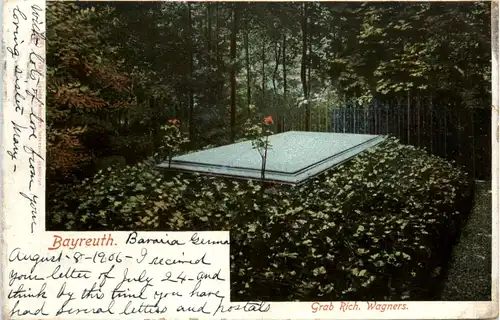 With lots of love from your
loving sister Mary -
Bayreuth. Bavaria Germa
August - 8 - 1906 - I received
your letter of July 24 - and
think by this time you have
had several letters and postals
Grab Rich. Wagners.